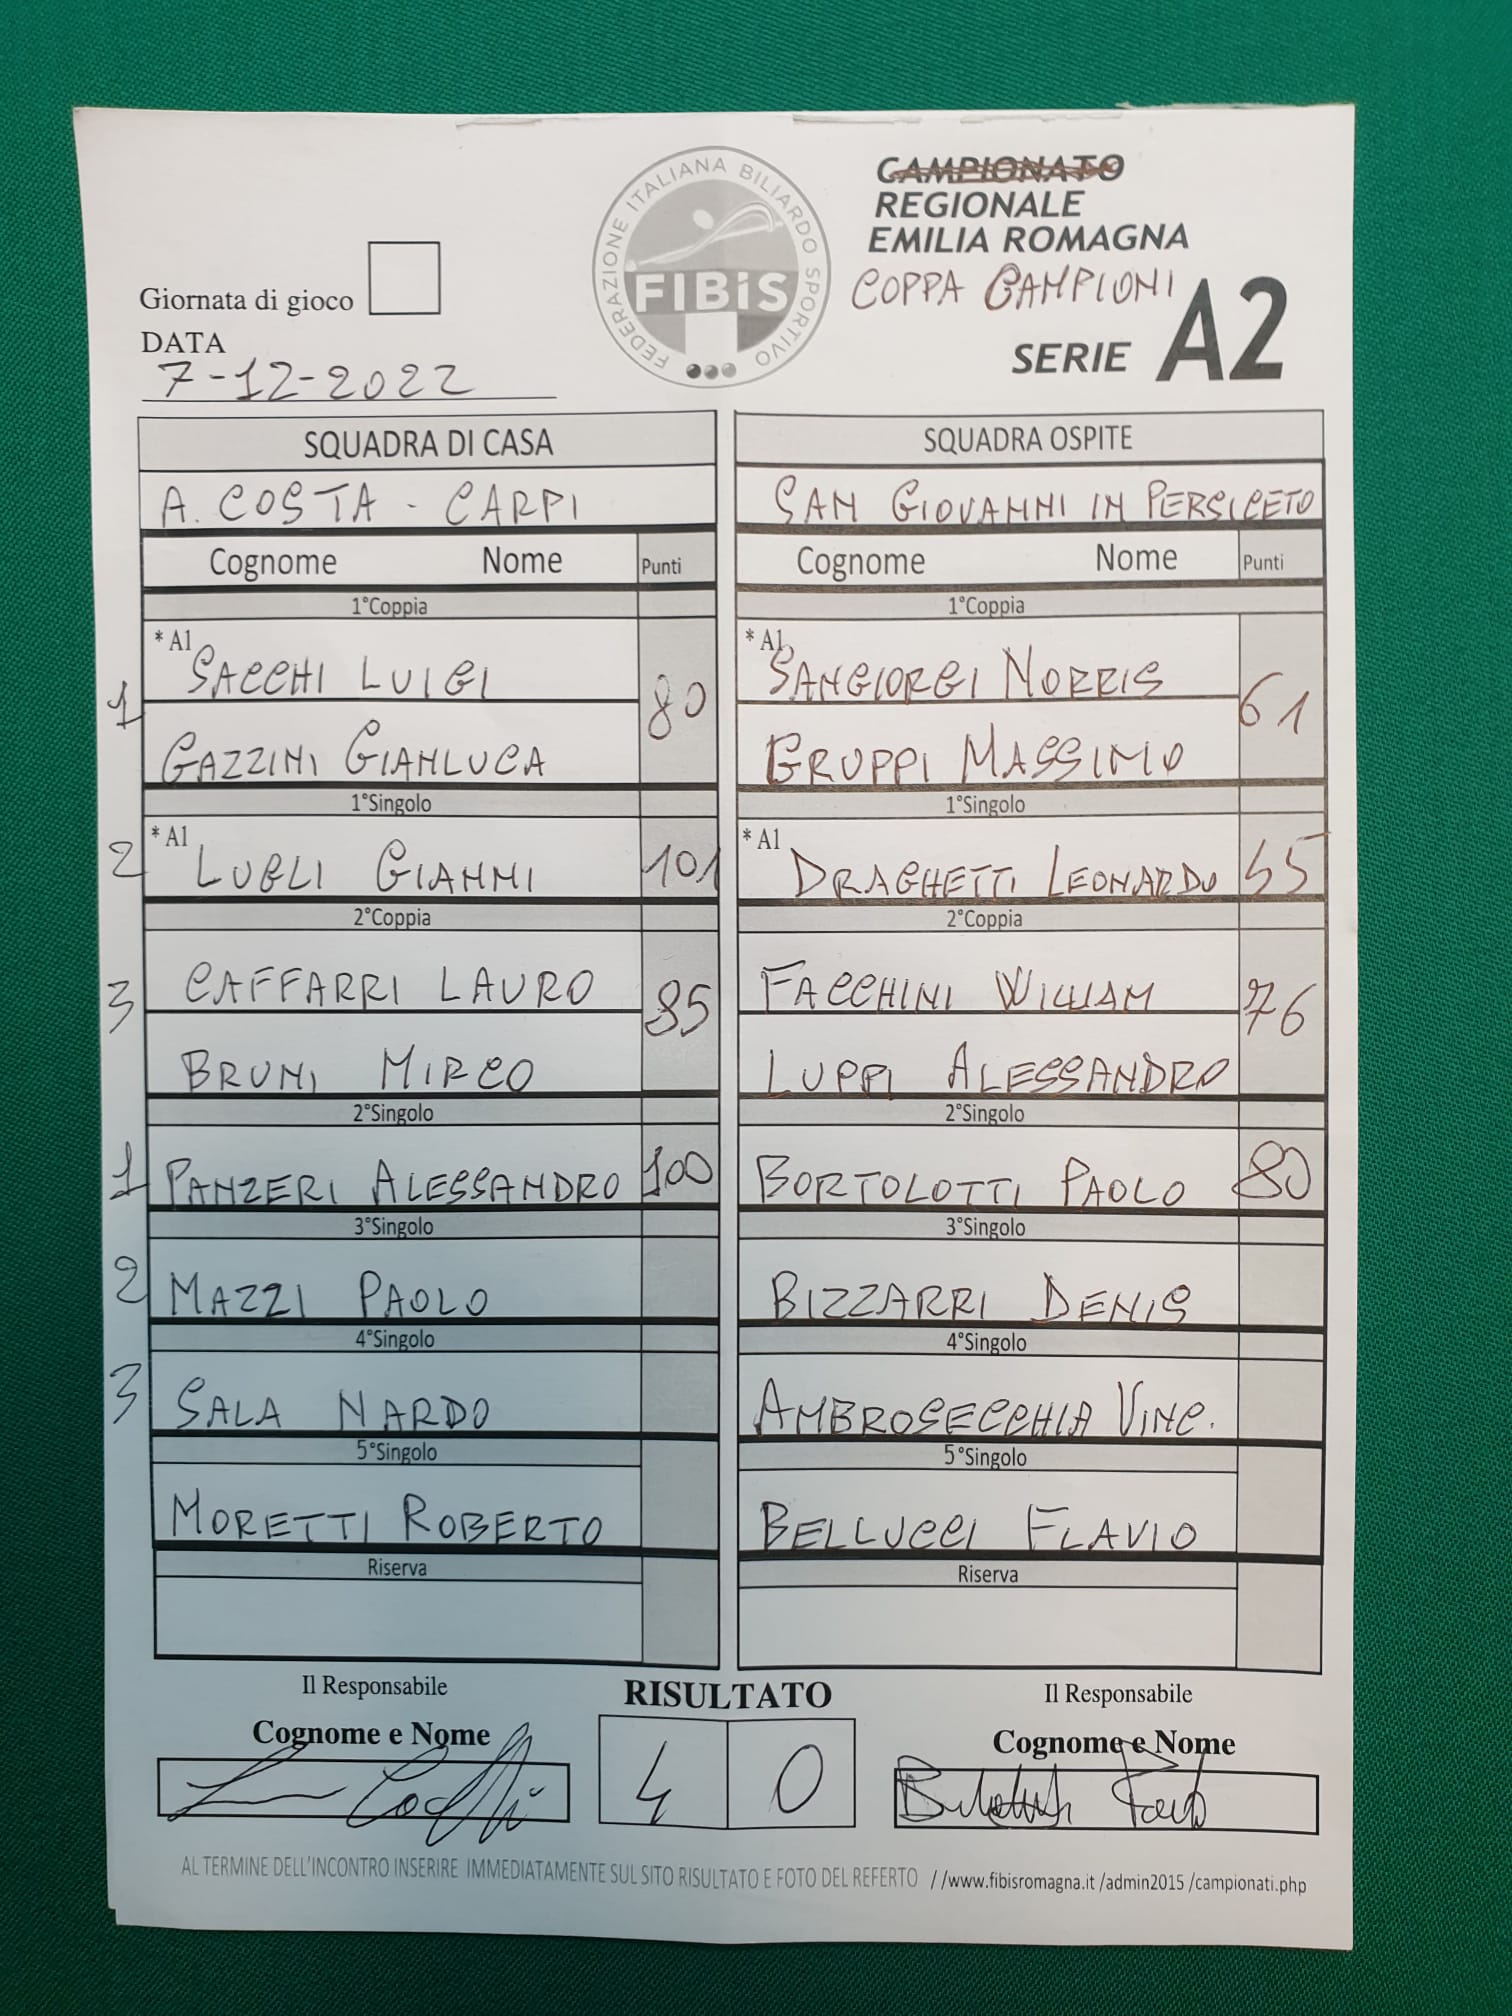 FEDERAZIONE ITALIANA BILIARDO SPORTIVO
FIBiS
CAMPIONATO
REGIONALE
EMILIA ROMAGNA
COPPA CAMPIONI
SERIE A2
Giornata di gioco
DATA
7-12-2022
SQUADRA DI CASA
A. COSTA - CARPI
Cognome Nome Punti
1°Coppia
* A1
SACCHI LUIGI
1 80
GAZZINI GIANLUCA
1°Singolo
* A1
2 LUGLI GIANNI 101
2°Coppia
CAFFARRI LAURO
3 85
BRUNI MIRCO
2°Singolo
1 PANZERI ALESSANDRO 100
3°Singolo
2 MAZZI PAOLO
4°Singolo
3 SALA NARDO
5°Singolo
MORETTI ROBERTO
Riserva
SQUADRA OSPITE
SAN GIOVANNI IN PERSICETO
Cognome Nome Punti
1°Coppia
* A1
SANGIORGI NORRIS
61
GRUPPI MASSIMO
1°Singolo
* A1
DRAGHETTI LEONARDO 55
2°Coppia
FACCHINI WILLIAM
76
LUPPI ALESSANDRO
2°Singolo
BORTOLOTTI PAOLO 80
3°Singolo
BIZZARRI DENIS
4°Singolo
AMBROSECCHIA VINC.
5°Singolo
BELLUCCI FLAVIO
Riserva
Il Responsabile
Cognome e Nome
RISULTATO
4 0
Il Responsabile
Cognome e Nome
AL TERMINE DELL'INCONTRO INSERIRE IMMEDIATAMENTE SUL SITO RISULTATO E FOTO DEL REFERTO //www.fibisromagna.it /admin2015 /campionati.php